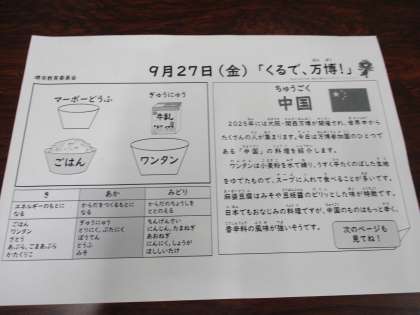 堺市教育委員会
9月27日(金)「くるで、万博!」
ばんぱく
マーボーどうふ
ぎゅうにゅう
牛乳
ごはん
ワンタン
き
あか
みどり
エネルギーのもとになる
からだをつくるもとになる
からだのちょうしをととのえる
ごはん
ワンタン
さとう
あぶら、ごまあぶら
かたくりこ
ぎゅうにゅう
とりにく、ぶたにく
ぽうてん
とうふ
みそ
ちんげんさい
にんじん、たまねぎ
あおねぎ
にんにく、しょうが
ほししいたけ
ちゅうごく
中国
2025年には大阪・関西万博が開催され、世界中から
たくさんの人が集まります。今日は万博参加国のひとつで
ある「中国」の料理を紹介します。
ワンタンは小麦粉を水で練り、うすく平たくのばした生地
をゆでたもので、スープに入れて食べることが多いです。
麻婆豆腐はみそや豆板醤のピリッとした味が特徴です。
日本でもおなじみの料理ですが、中国のものはもっと辛く、
香辛料の風味が強いそうです。
次のページも
見てね!